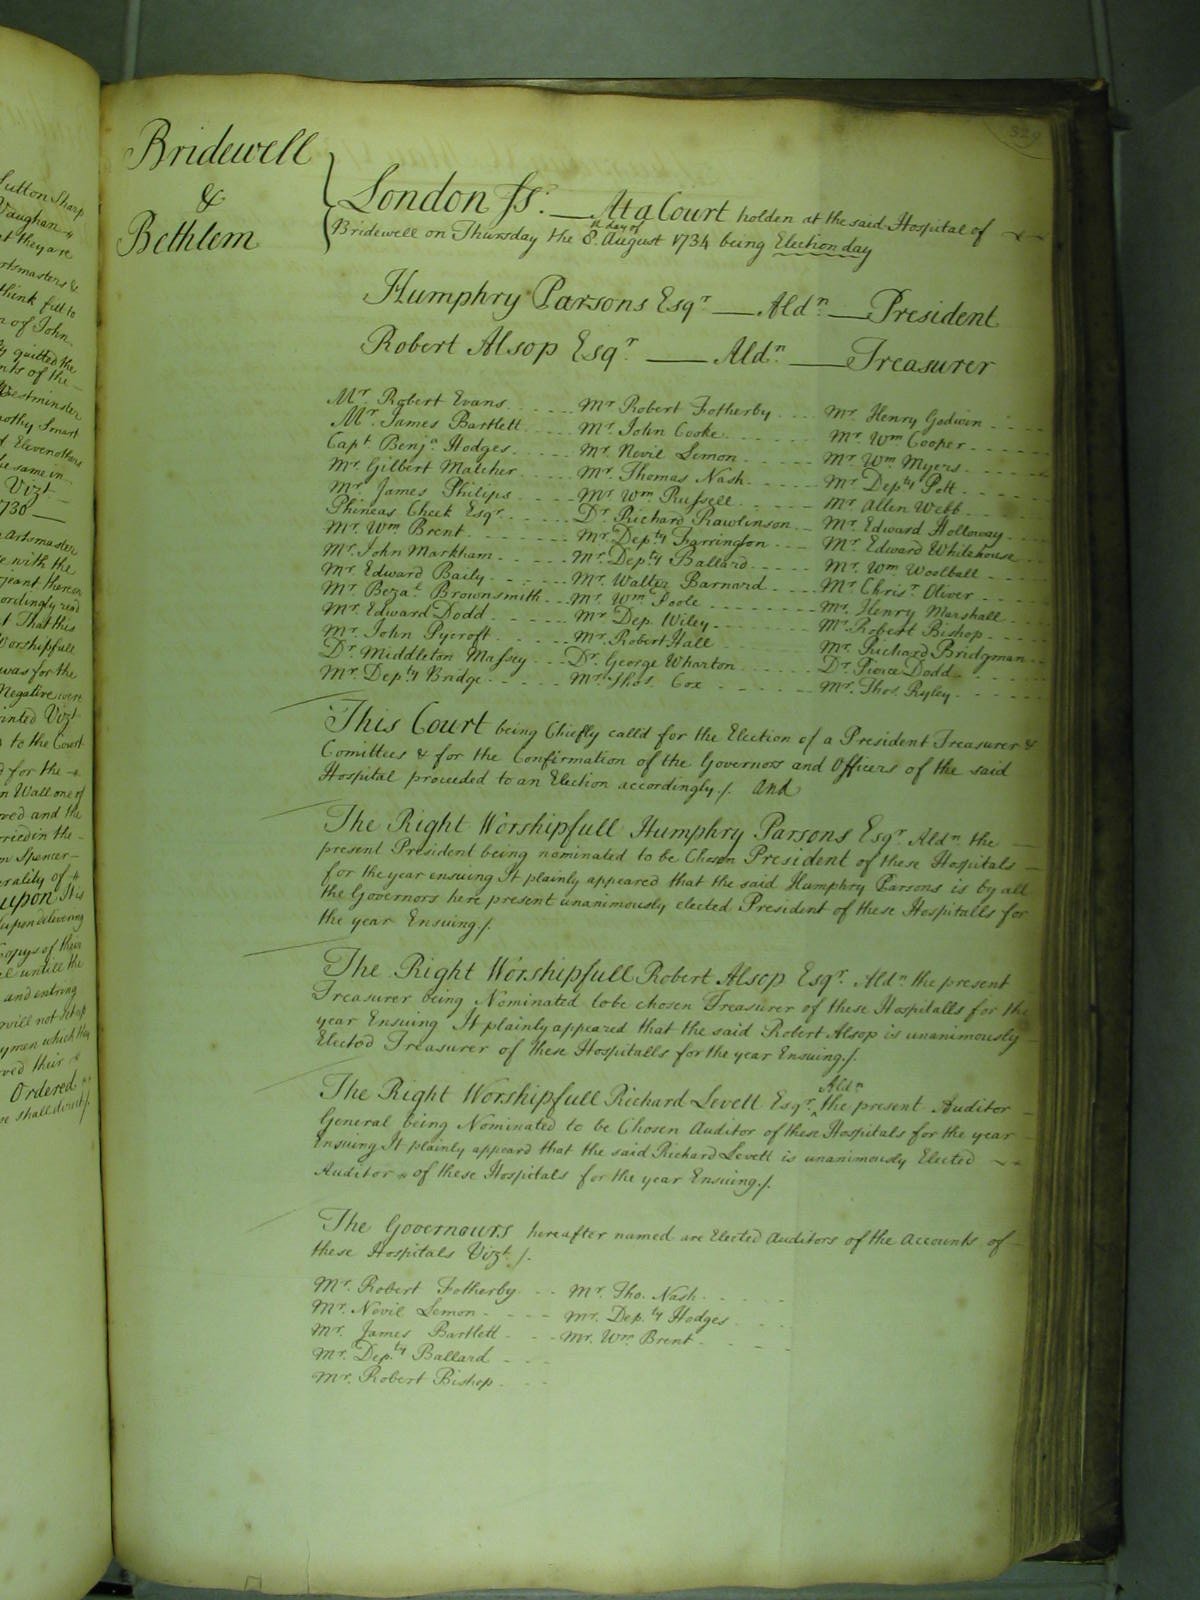 Sutton Sharp
Vaughan
at they are
artsmasters &
think fitt to
n of John
ly quitted the
nts of the
Westminster
mothy Smart
d Eleven others
he same in
Vizt
1730
Artsmaster
e with the
rgeant thereon
cordingly read
t That this
Worshipfull
was for the
Negative were
ointed Vizt
s to the Court
d for the
n Wall one of
ved and the
rried in the
n Spencer
erality of
upon It is
upon delivering
Copys of their
el untill the
and entring
will not set up
ymen which they
ved their
Ordered
e shall direct /.
329
Bridewell
&
Bethlem
London ss. At a Court holden at the said Hospital of
Bridewell on Thursday the 8th day of August 1734 being Election day
Humphry Parsons Esqr — Aldn — President
Robert Alsop Esqr — Aldn — Treasurer
Mr Robert Evans Mr Robert Fotherby Mr Henry Godwin
Mr James Bartlett Mr John Cooke Mr Wm Cooper
Capt Benja Hodges Mr Nevil Lemon Mr Wm Myers
Mr Gilbert Malcher Mr Thomas Nash Mr Depty Pott
Mr James Philips Mr Wm Russell Mr Allen Webb
Phineas Cheek Esqr Dr Richard Rawlinson Mr Edward Holloway
Mr Wm Brent Mr Depty Farrington Mr Edward Whitehouse
Mr John Markham Mr Depty Ballard Mr Wm Woolball
Mr Edward Baily Mr Walter Barnard Mr Chrisr Oliver
Mr Bezal Brownsmith Mr Wm Poole Mr Henry Marshall
Mr Edward Dodd Mr Dep Wiley Mr Robert Bishop
Mr John Pycroft Mr Robert Hall Mr Richard Bridgman
Dr Middleton Massey Dr George Wharton Dr Pierce Dodd
Mr Depty Bridge Mr Thos Cox Mr Thos Ryley
This Court being Chiefly calld for the Election of a President Treasurer &
Comittees & for the Confirmation of the Governors and Officers of the said
Hospital proceeded to an Election accordingly /. And
The Right Worshipfull Humphry Parsons Esqr Aldn the
present President being nominated to be Chosen President of these Hospitals
for the year ensuing It plainly appeared that the said Humphry Parsons is by all
the Governors here present unanimously elected President of these Hospitalls for
the year Ensuing /.
The Right Worshipfull Robert Alsop Esqr Aldn the present
Treasurer being Nominated to be chosen Treasurer of these Hospitalls for the
year Ensuing It plainly appeared that the said Robert Alsop is unanimously
Elected Treasurer of these Hospitalls for the year Ensuing /.
The Right Worshipfull Richard Levett Esqr Aldn the present Auditor
General being Nominated to be Chosen Auditor of these Hospitals for the year
Ensuing It plainly appeard that the said Richard Levett is unanimously Elected
Auditor of these Hospitals for the year Ensuing /.
The Governours hereafter named are Elected Auditors of the Accounts of
these Hospitals Vizt /.
Mr Robert Fotherby Mr Tho. Nash
Mr Nevil Lemon Mr Depty Hodges
Mr James Bartlett Mr Wm Brent
Mr Depty Ballard
Mr Robert Bishop